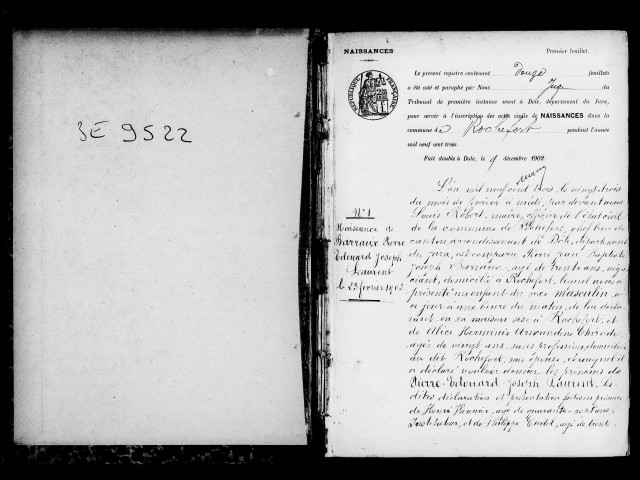 3E 9522
NAISSANCES
Premier feuillet.
Le présent registre contenant douze feuillets
a été coté et paraphé par Nous Juge du
Tribunal de première instance séant à Dole, département du Jura,
pour servir à l'inscription des actes civils de NAISSANCES dans la
commune de Rochefort pendant l'année
mil neuf cent trois.
Fait double à Dole, le 9 décembre 1902.
RÉPUBLIQUE FRANÇAISE
N° 1
Naissance de
Barraux Pierre
Edouard Joseph
Laurent
le 23 février 1903
L'an mil neuf cent trois, le vingt trois
du mois de février à midi, par devant nous
Louis Robert, maire, officier de l'état civil
de la commune de Rochefort, chef lieu de
canton arrondissement de Dôle, département
du Jura, est comparu Pierre Jean Baptiste
Joseph Barraux, agé de trente ans, négo
ciant, domicilié à Rochefort, lequel nous a
présenté un enfant du sexe masculin né
ce jour à une heure du matin, de lui décla
rant, en sa maison sise à Rochefort, et
de Alice Herminie Armandine
agée de vingt ans, sans profession, domiciliée
au dit Rochefort, son épouse, et auquel il
a déclaré vouloir donner les prénoms de
Pierre-Edouard Joseph Laurent. Les
dites déclaration et présentation faites en présence
de Henri agé de quarante-sept ans,
Instituteur, et de Philippe agé de trente